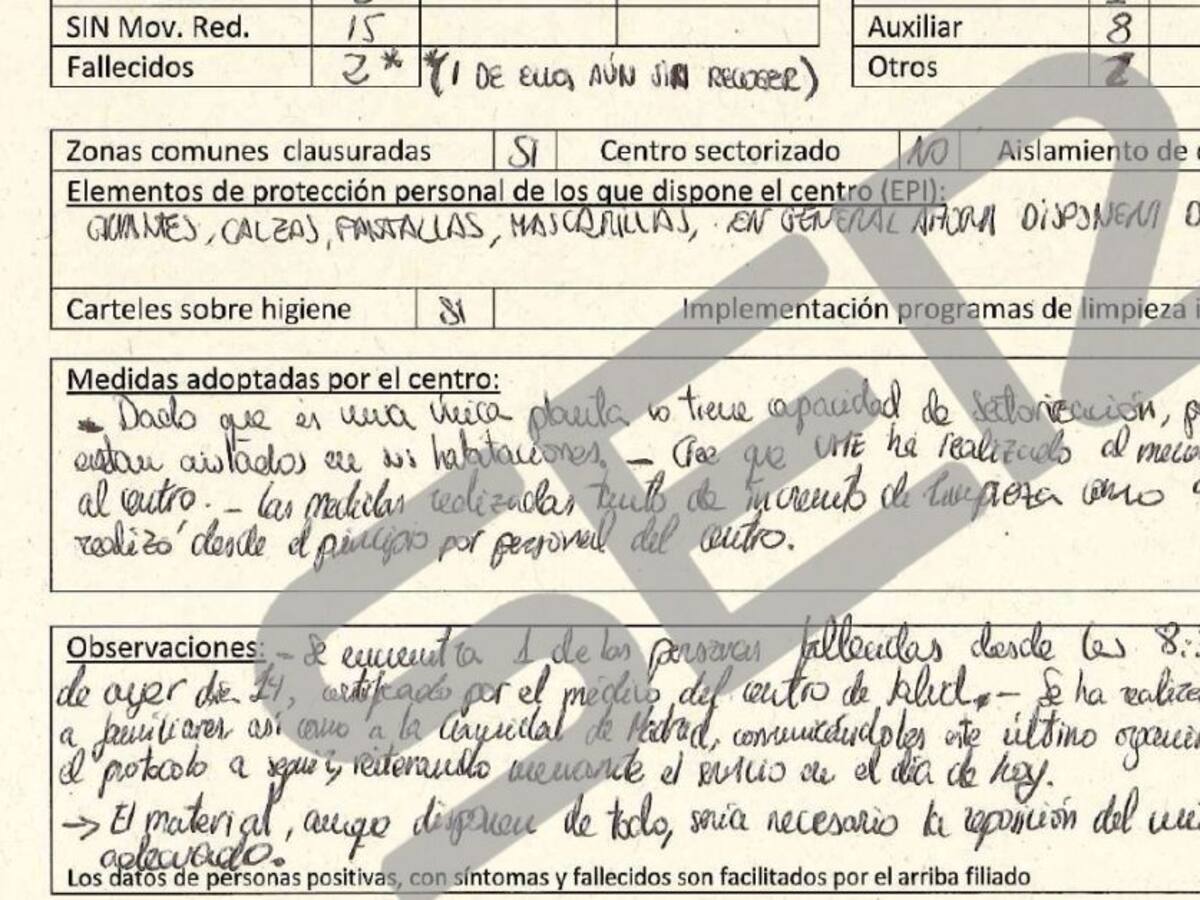 SIN Mov. Red. 15 Auxiliar 8
Fallecidos 2* *(1 DE ELLOS AÚN SIN RECOGER) Otros
Zonas comunes clausuradas SI Centro sectorizado NO Aislamiento de
Elementos de protección personal de los que dispone el centro (EPI):
GUANTES, CALZAS, PANTALLAS, MASCARILLAS, EN GENERAL AHORA DISPONEN
Carteles sobre higiene SI Implementación programas de limpieza
Medidas adoptadas por el centro:
- Dado que es una única planta no tiene capacidad de sectorización,
estan aislados en sus habitaciones. - Cree que UME ha realizado al menos
al centro. - Las medidas realizadas tanto de incremento de limpieza como
realizó desde el principio por personal del centro.
Observaciones: - Se encuentra 1 de las personas fallecidas desde las 8:
de ayer día 14, certificado por el médico del centro de salud. - Se ha
a familiares así como a la Comunidad de Madrid, comunicándoles este último
el protocolo a seguir, reiterando el servicio en el día de hoy.
→ El material, aunqe disponen de todo, sería necesario la reposición del
adecuado.
Los datos de personas positivas, con síntomas y fallecidos son facilitados por el arriba filiado
SER